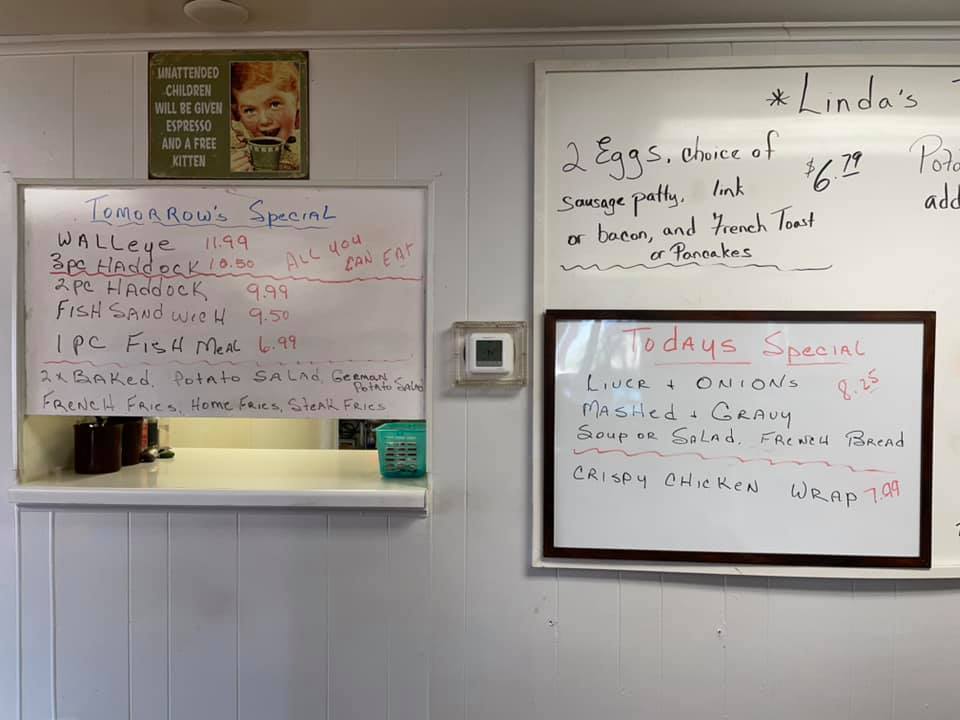 UNATTENDED
CHILDREN
WILL BE GIVEN
ESPRESSO
AND A FREE
KITTEN
TOMORROW'S SPECIAL
WALLeye 11.99
3pc HADDOCK 10.50 ALL YOU CAN EAT
2PC HADDOCK 9.99
FISH SANDWICH 9.50
1 PC FISH MEAL 6.99
2x BAKED, POTATO SALAD, GERMAN POTATO SALAD
FRENCH FRIES, HOME FRIES, STEAK FRIES
*Linda's
2 Eggs, choice of $6.79
sausage patty, link
or bacon, and French Toast
or Pancakes
add
TODAYS SPECIAL
LIVER + ONIONS 8.25
MASHED + GRAVY
SOUP OR SALAD, FRENCH BREAD
CRISPY CHICKEN WRAP 7.99